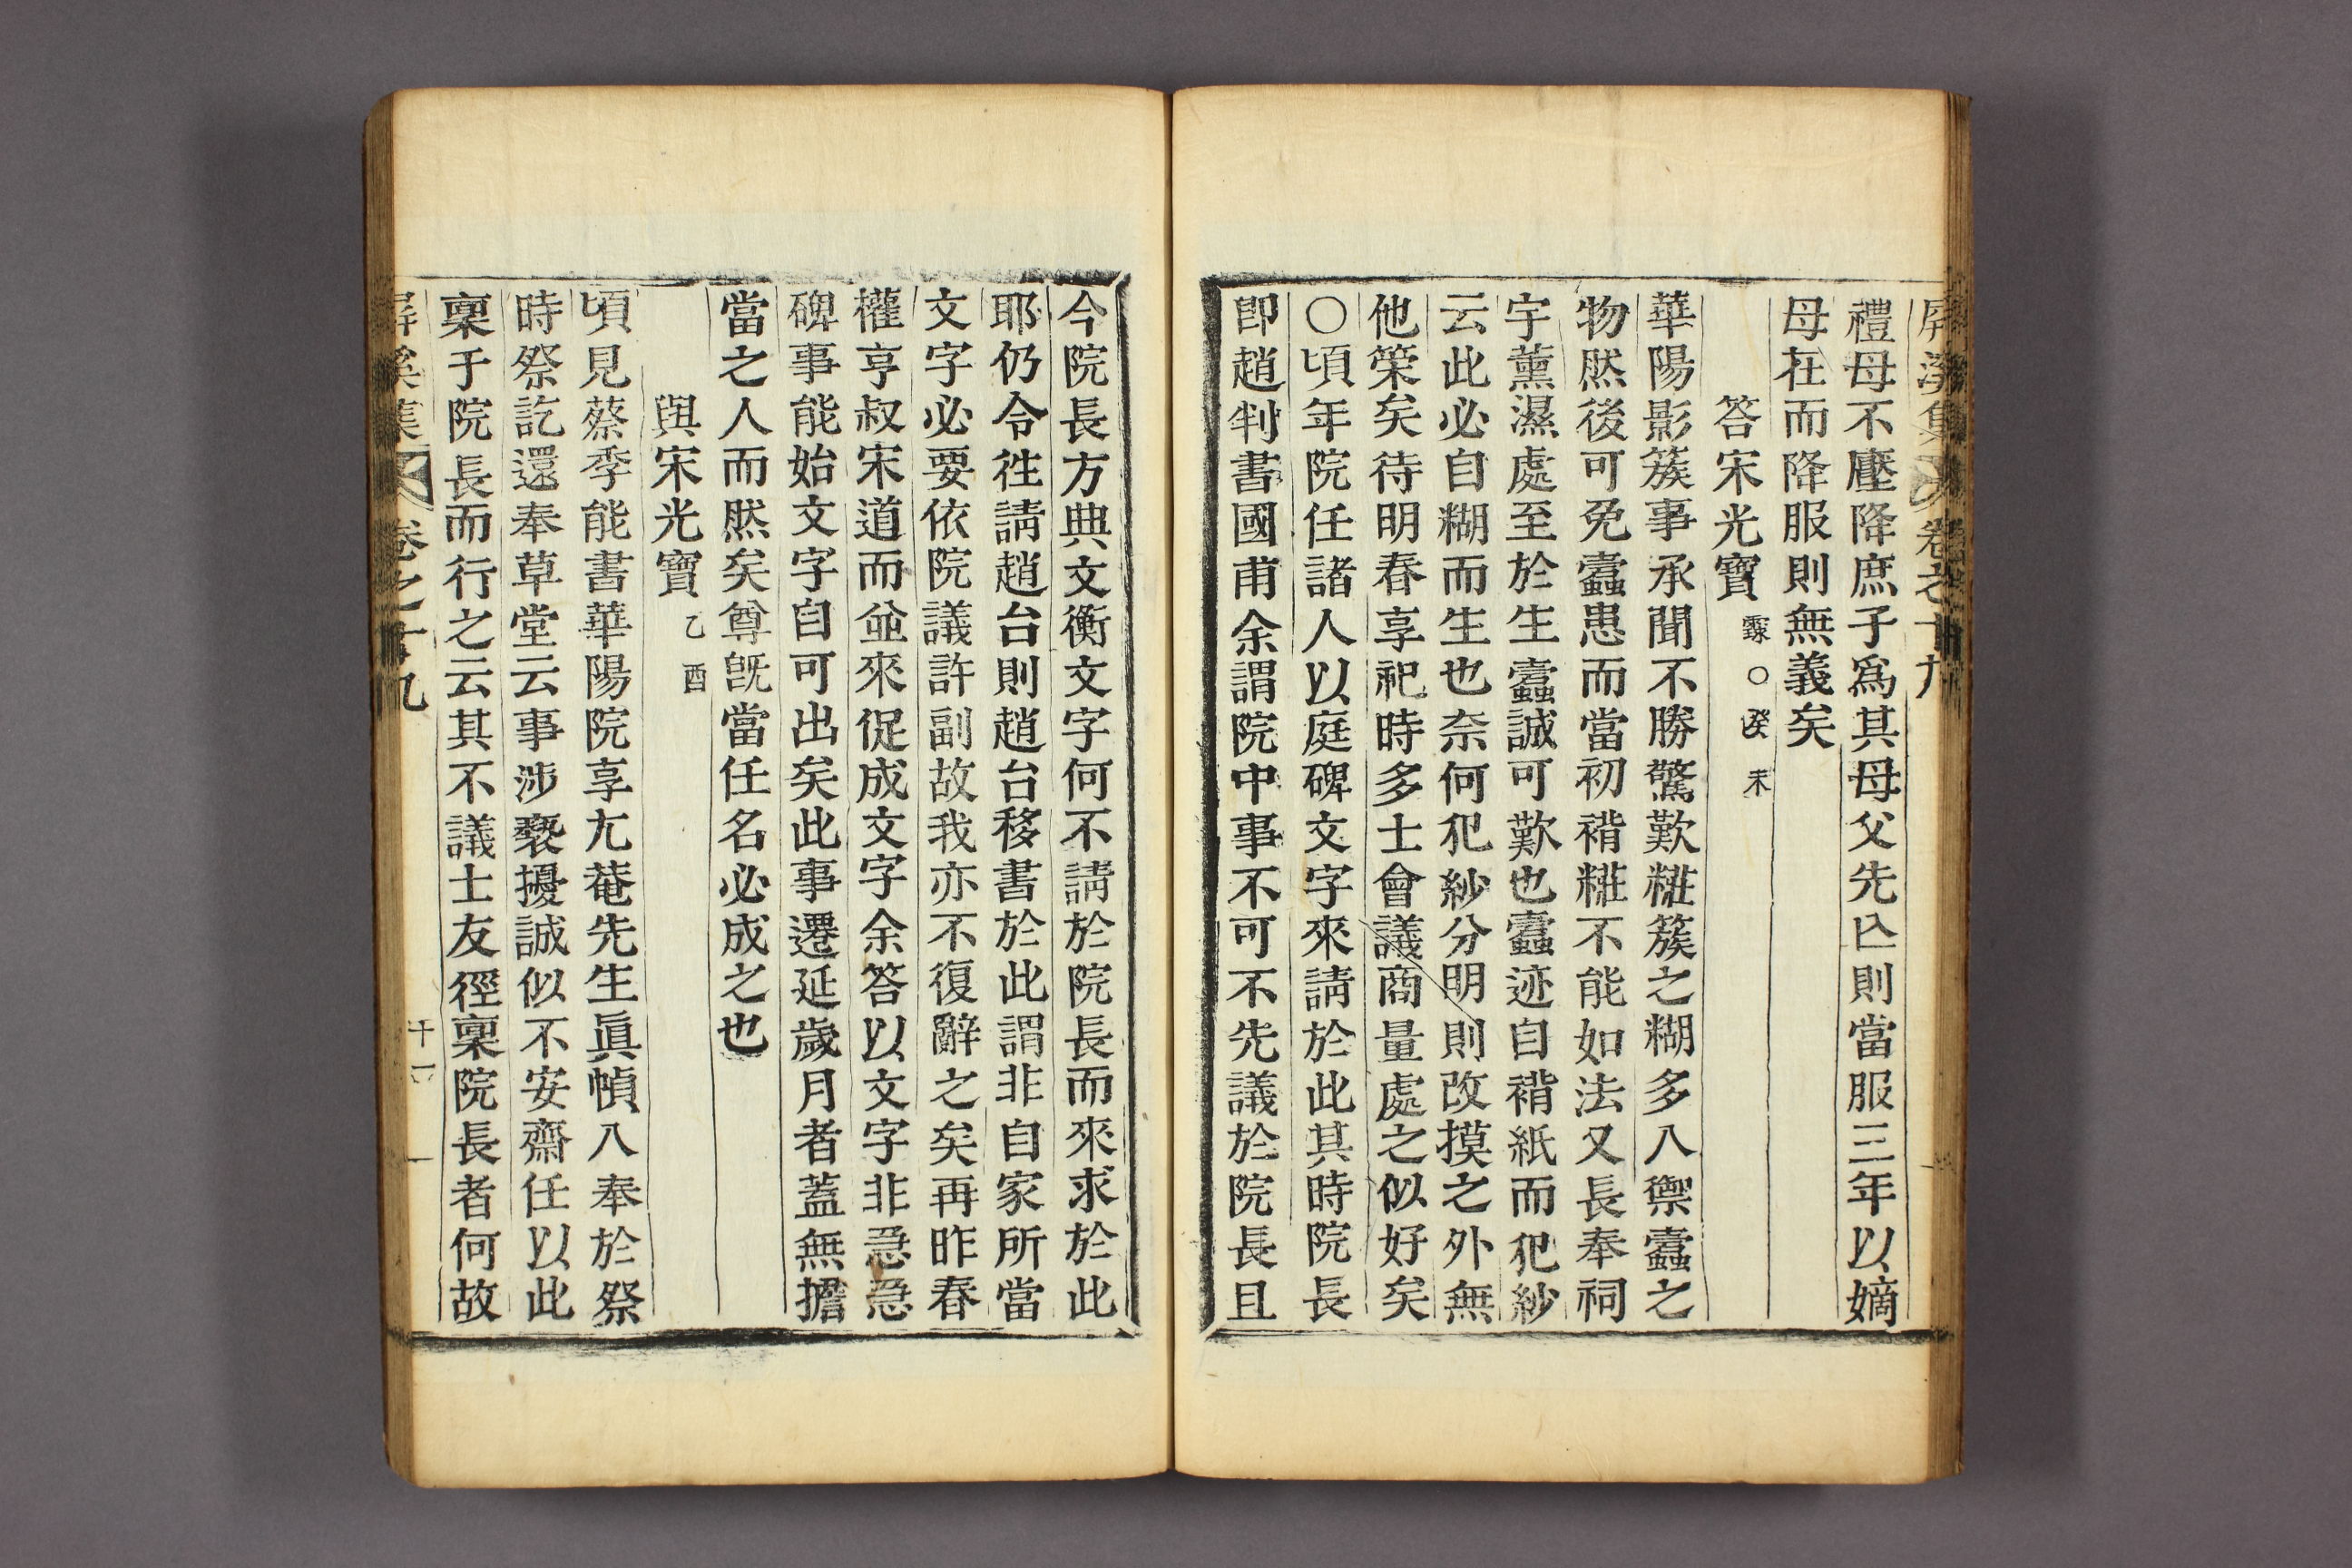 屛溪集 卷之十九
禮母不壓降庶子爲其母父先亾則當服三年以嫡
母在而降服則無義矣
答宋光寶 霥○癸未
華陽影簇事承聞不勝驚歎糚簇之糊多入禦蠧之
物然後可免蠧患而當初褙糚不能如法又長奉祠
宇薰濕處至於生蠧誠可歎也蠧迹自褙紙而犯紗
云此必自糊而生也奈何犯紗分明則改摸之外無
他策矣待明春享祀時多士會議商量處之似好矣
○頃年院任諸人以庭碑文字來請於此其時院長
卽趙判書國甫余謂院中事不可不先議於院長且
今院長方典文衡文字何不請於院長而來求於此
耶仍令徃請趙台則趙台移書於此謂非自家所當
文字必要依院議許副故我亦不復辭之矣再昨春
權亨叔宋道而並來促成文字余答以文字非急急
碑事能始文字自可出矣此事遷延歲月者蓋無擔
當之人而然矣尊旣當任名必成之也
與宋光寶 乙酉
頃見蔡季能書華陽院享尤菴先生眞幀入奉於祭
時祭訖還奉草堂云事涉褻擾誠似不安齋任以此
稟于院長而行之云其不議士友徑稟院長者何故
屛溪集 卷之十九 十一